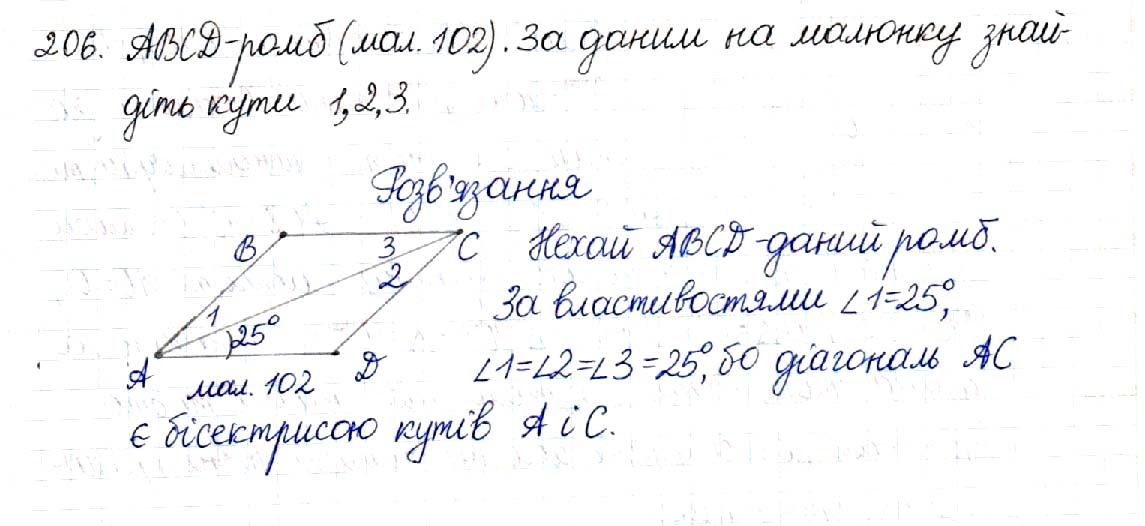 206. ABCD-ромб (мал. 102). За даним на малюнку знай-
діть кути 1, 2, 3.
Розв'язання
B 3 C Нехай ABCD-даний ромб.
2 За властивостями ∠1=25°,
1 25°
A D ∠1=∠2=∠3=25°, бо діагональ AC
мал. 102
є бісектрисою кутів A і C.